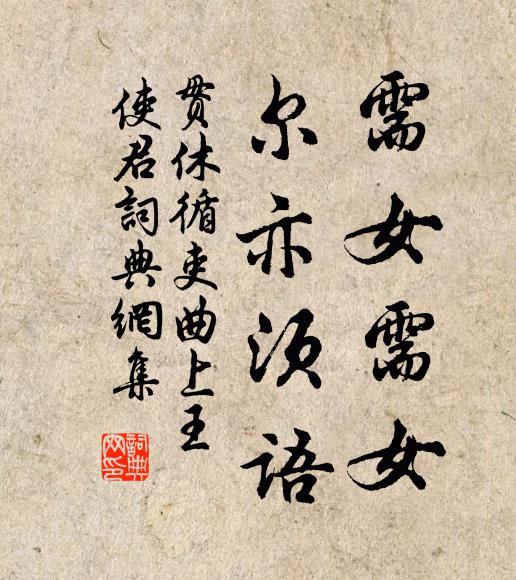 需女需女
尔亦须语
貫休循吏曲上王
使君詞典網集
詞典
网印